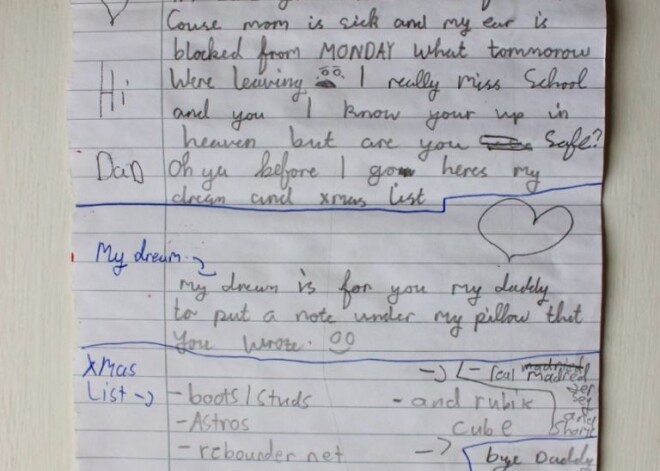 Couse mom is sick and my ear is
blocked from MONDAY what tommorow
Hi
Were leaving I really miss School
and you I know your up in
heaven but are you Safe?
DaD
Oh ya before I go heres my
dream and xmas list
My dream
my dream is for you my daddy
to put a note under my pillow that
you wrote.
XMas
List
- boots/studs
- Astros
- rebounder net
- real madried
jersey
and
shorts
- and rubix
cube
bye Daddy